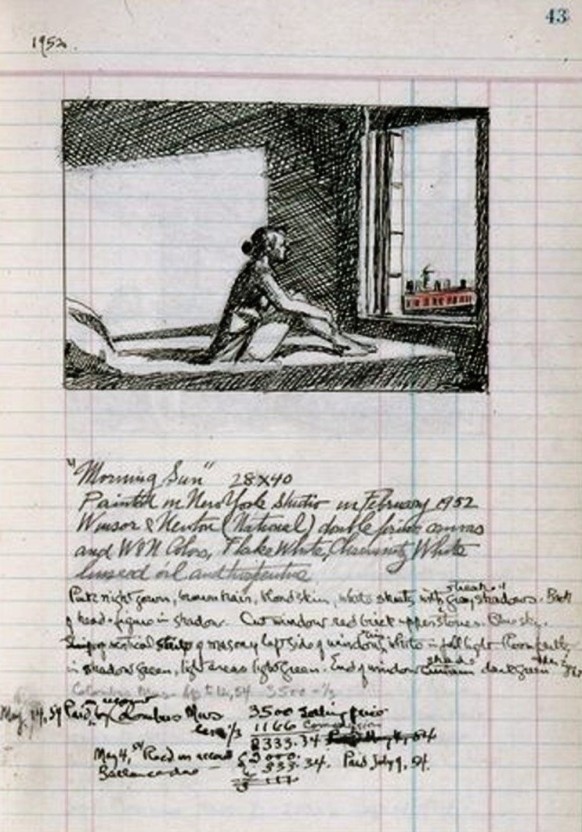 43
1952.
"Morning Sun" 28X40
Painted in New York Studio in February 1952
Winsor & Newton (National) double prime canvas
and W&N Colors, Flake White, White
linseed oil and turpentine
streak
Pink night gown, brown hair, blond skin, white sheets with gray shadows. Back
of head & figure in shadow. Out window red brick upper stories. Blue sky.
vertical strip of masonry left side of window, white in full light. Room
in shadow green, light areas light green. End of window dark green
shade
Columbus Mus. 54 3500 - 1/3
May 54 Paid by Columbus Mus 3500 Selling price
less 1/3 1166
2333.34
May 4, 54 Recd on account 2000.
Balance due 333.34. Paid July 9, 54.